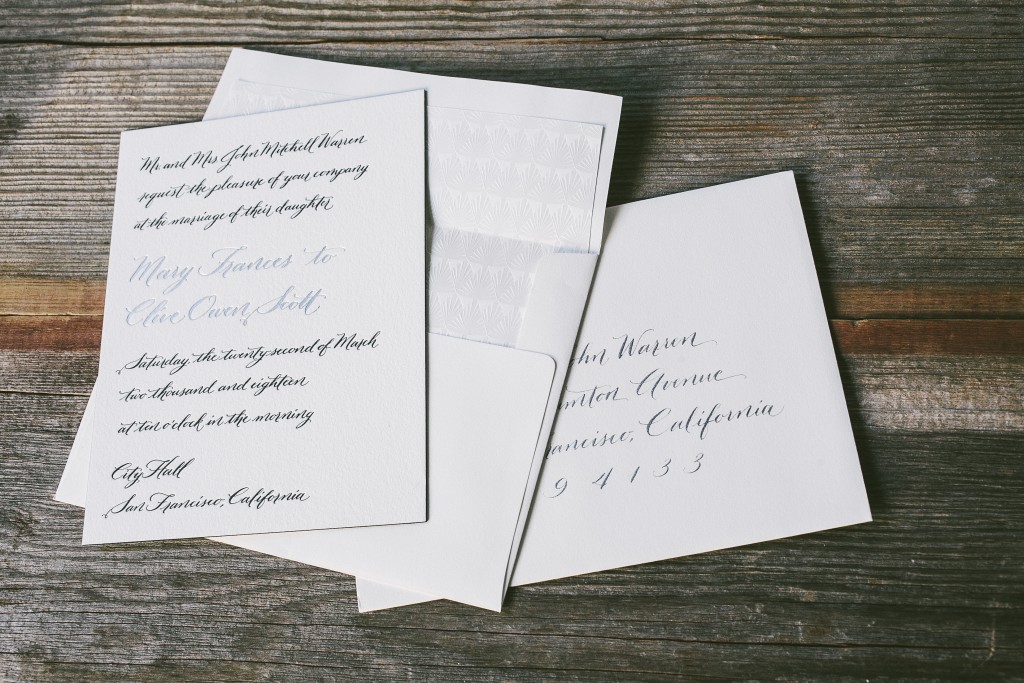 Mr. and Mrs. John Mitchell Warren
request the pleasure of your company
at the marriage of their daughter
Mary Frances to
Clive Owen Scott
Saturday, the twenty second of March
two thousand and eighteen
at ten o'clock in the morning
City Hall
San Francisco, California
hn Warren
nton Avenue
ancisco, California
9 4 1 3 3